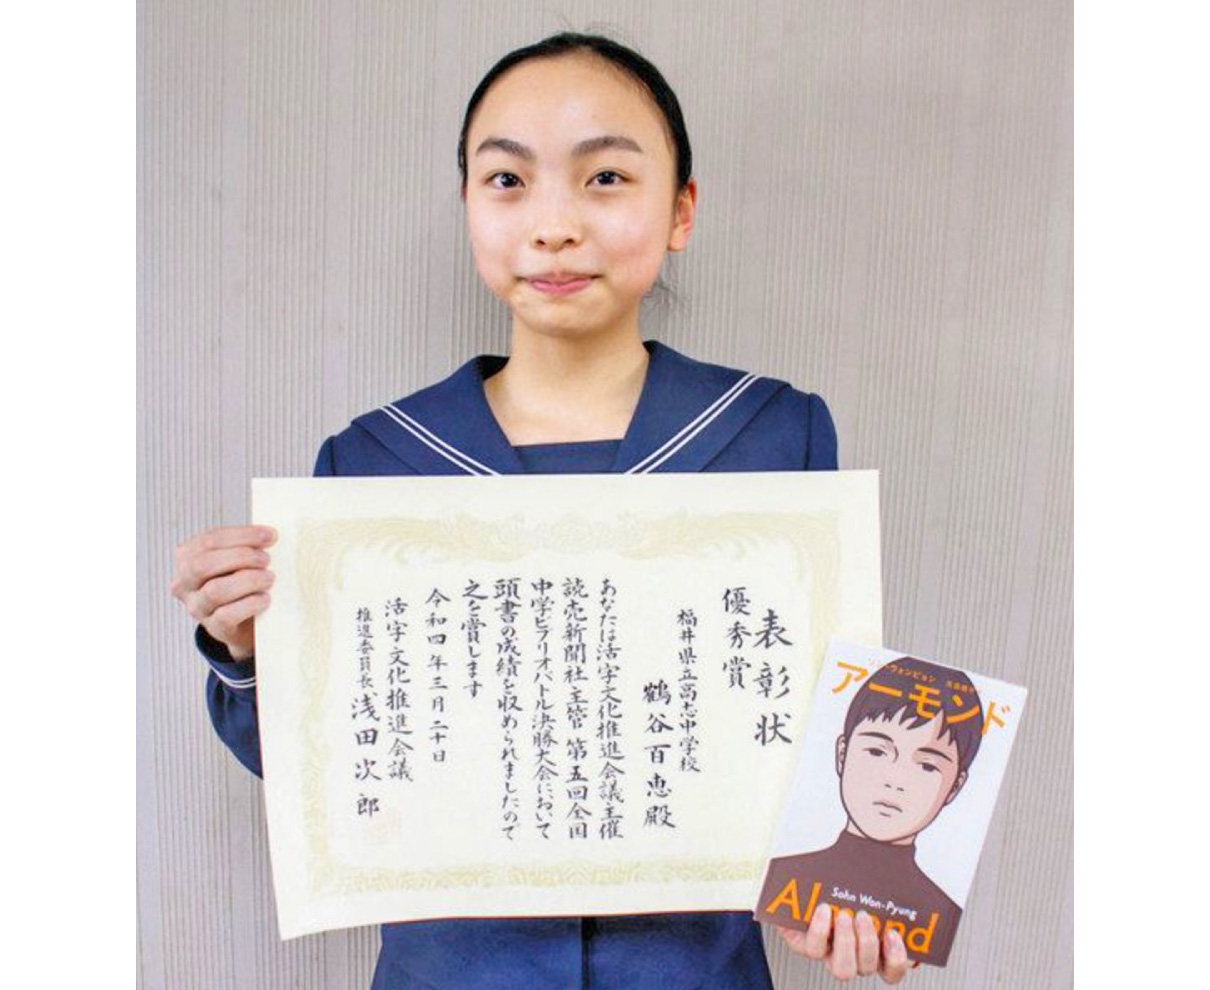 表彰状
優秀賞
福井県立高志中学校
鶴谷百恵殿
あなたは活字文化推進会議主催
読売新聞社主管 第五回全国
中学ビブリオバトル決勝大会において
頭書の成績を収められましたので
之を賞します
令和四年三月二十日
活字文化推進会議
推進委員長 浅田次郎
アーモンド
Sohn Won-Pyung
Almond